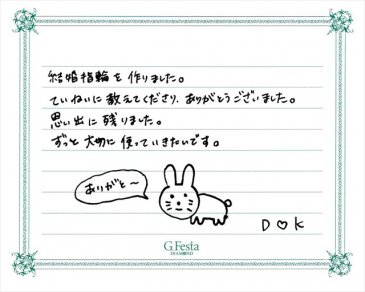 結婚指輪を作りました。
ていねいに教えてくださり、ありがとうございました。
思い出に残りました。
ずっと大切に使っていきたいです。
ありがと〜
D♡K
G.Festa
DIAMOND